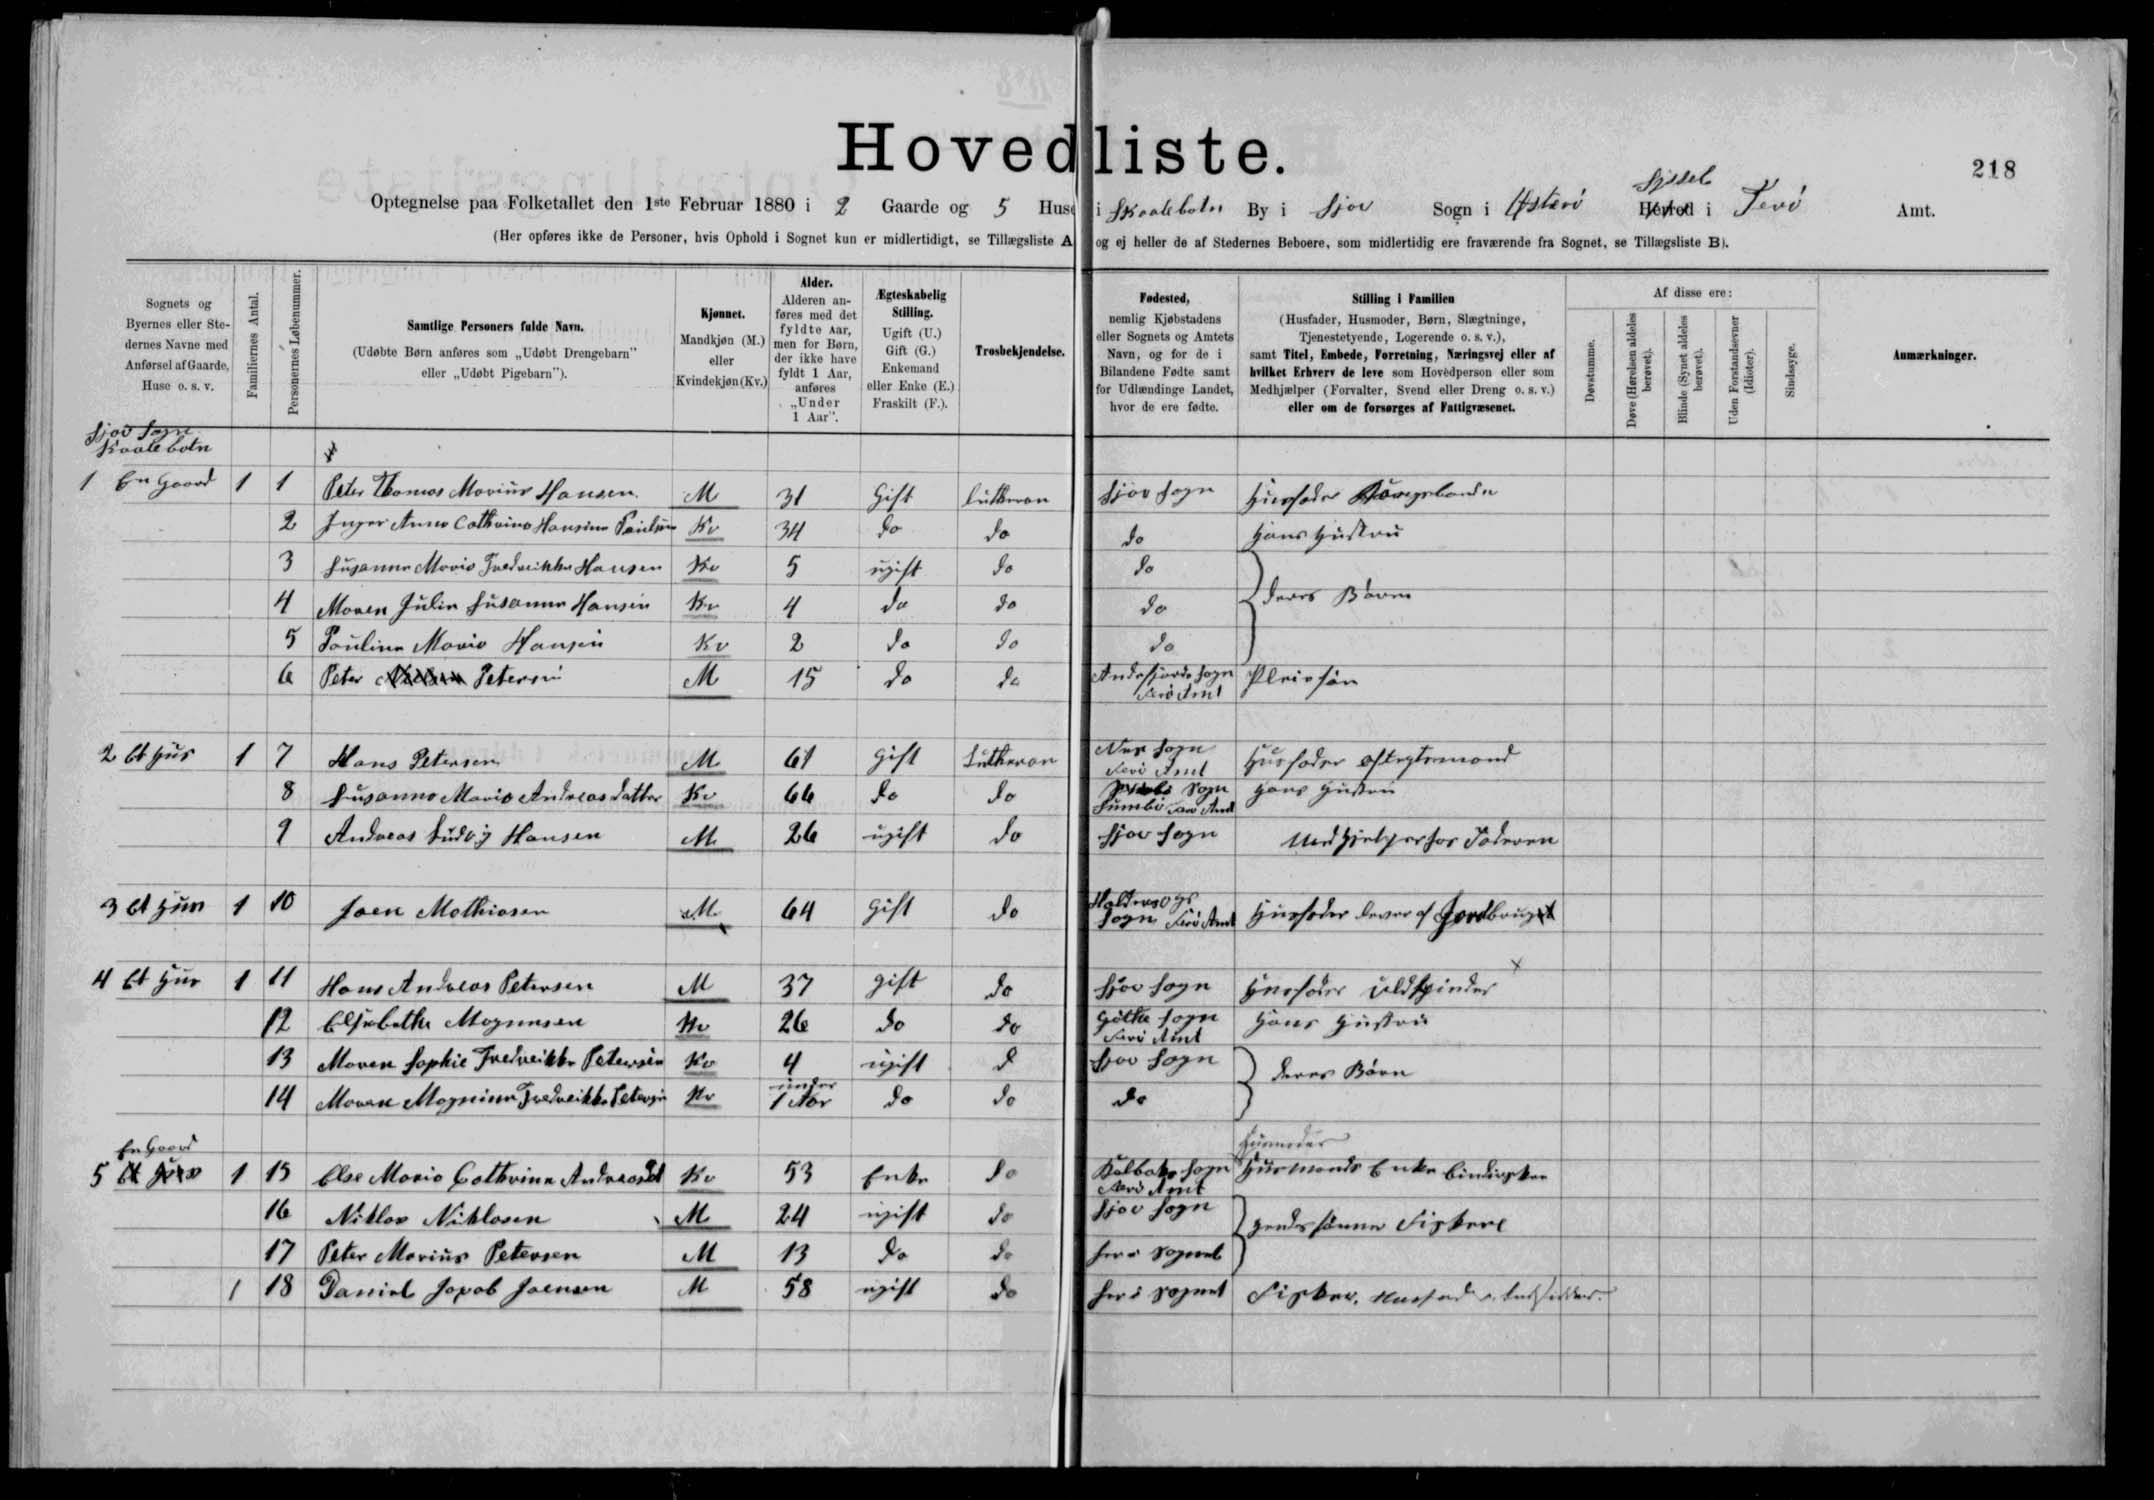 Hovedliste.
218
Optegnelse paa Folketallet den 1ste Februar 1880 i 2 Gaarde og 5 Huse i Skaalebotn By i Sjov Sogn i Østerö Herred Syssel i Ferö Amt.
(Her opføres ikke de Personer, hvis Ophold i Sognet kun er midlertidigt, se Tillægsliste A og ej heller de af Stedernes Beboere, som midlertidig ere fraværende fra Sognet, se Tillægsliste B).
Sognets og Byernes eller Stedernes Navne med Anførsel af Gaarde, Huse o. s. v.
Familiernes Antal.
Personernes Løbenummer.
Samtlige Personers fulde Navn. (Udøbte Børn anføres som „Udøbt Drengebarn" eller „Udøbt Pigebarn").
Kjønnet. Mandkjøn (M.) eller Kvindekjøn (Kv.)
Alder. Alderen anføres med det fyldte Aar, men for Børn, der ikke have fyldt 1 Aar, anføres „Under 1 Aar".
Ægteskabelig Stilling. Ugift (U.) Gift (G.) Enkemand eller Enke (E.) Fraskilt (F.).
Trosbekjendelse.
Fødested, nemlig Kjøbstadens eller Sognets og Amtets Navn, og for de i Bilandene Fødte samt for Udlændinge Landet, hvor de ere fødte.
Stilling i Familien (Husfader, Husmoder, Børn, Slægtninge, Tjenestetyende, Logerende o. s. v.), samt Titel, Embede, Forretning, Næringsvej eller af hvilket Erhverv de leve som Hovedperson eller som Medhjælper (Forvalter, Svend eller Dreng o. s. v.) eller om de forsørges af Fattigvæsenet.
Af disse ere:
Døvstumme.
Døve (Hørelsen aldeles berøvet).
Blinde (Synet aldeles berøvet).
Uden Forstandsevner (Idioter).
Sindssyge.
Anmærkninger.
Sjov Sogn
Skaalebotn
1 En Gaard 1 1 Peter Thomas Marius Hansen M 31 Gift Lutheran Sjov Sogn Husfader Kongsbonde
2 Inger Anna Cathrina Hansine Poulsen Kv 34 do do do Hans Hustru
3 Susanna Maria Fredrikke Hansen Kv 5 ugift do do
4 Maren Julia Susanna Hansen Kv 4 do do do deres Børn
5 Paulina Maria Hansen Kv 2 do do do
6 Peter Petersen M 15 do do Andefjords Sogn Ferö Amt Pleiesön
2 Et Hus 1 7 Hans Petersen M 61 Gift Lutheran Nes Sogn Ferö Amt Husfader Aftegtsmand
8 Susanna Maria Andreasdatter Kv 66 do do Sogn Sumbö Ferö Amt Hans Hustru
9 Andreas Ludvig Hansen M 26 ugift do Sjov Sogn Medhjelper for Faderen
3 Et Hus 1 10 Joen Mathiasen M 64 Gift do Haldersvigs Sogn Ferö Amt Husfader lever af Jordbruget
4 Et Hus 1 11 Hans Andreas Petersen M 37 Gift do Sjov Sogn Husfader Uldspinder
12 Elsebethe Magnusen Kv 26 do do Göthe Sogn Ferö Amt Hans Hustru
13 Maren Sophie Fredrikke Petersen Kv 4 ugift d Sjov Sogn deres Børn
14 Maren Magnina Fredrikke Petersen Kv under 1 Aar do do do
En Gaard
5 Et Hus 1 15 Else Maria Cathrina Andreasdt Kv 53 Enke do Kalbaks Sogn Ferö Amt Husmoder Husmands Enke
16 Niklas Niklasen M 24 ugift do Sjov Sogn hendes sønner Fiskere
17 Peter Marius Petersen M 13 do do her i Sognet
1 18 Daniel Jacob Joensen M 58 ugift do her i Sognet Fisker,